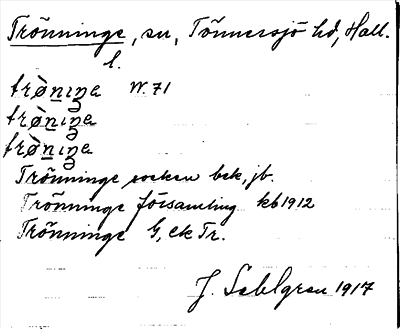 Trönninge, sn, Tönnersjö hd, Hall.
l.
trø̀niŋa W. 71
trø̀niŋa
trø̀niŋa
Trönninge socken bek, jb.
Trönninge församling kb 1912
Trönninge G, ek Tr.
J. Sahlgren 1917